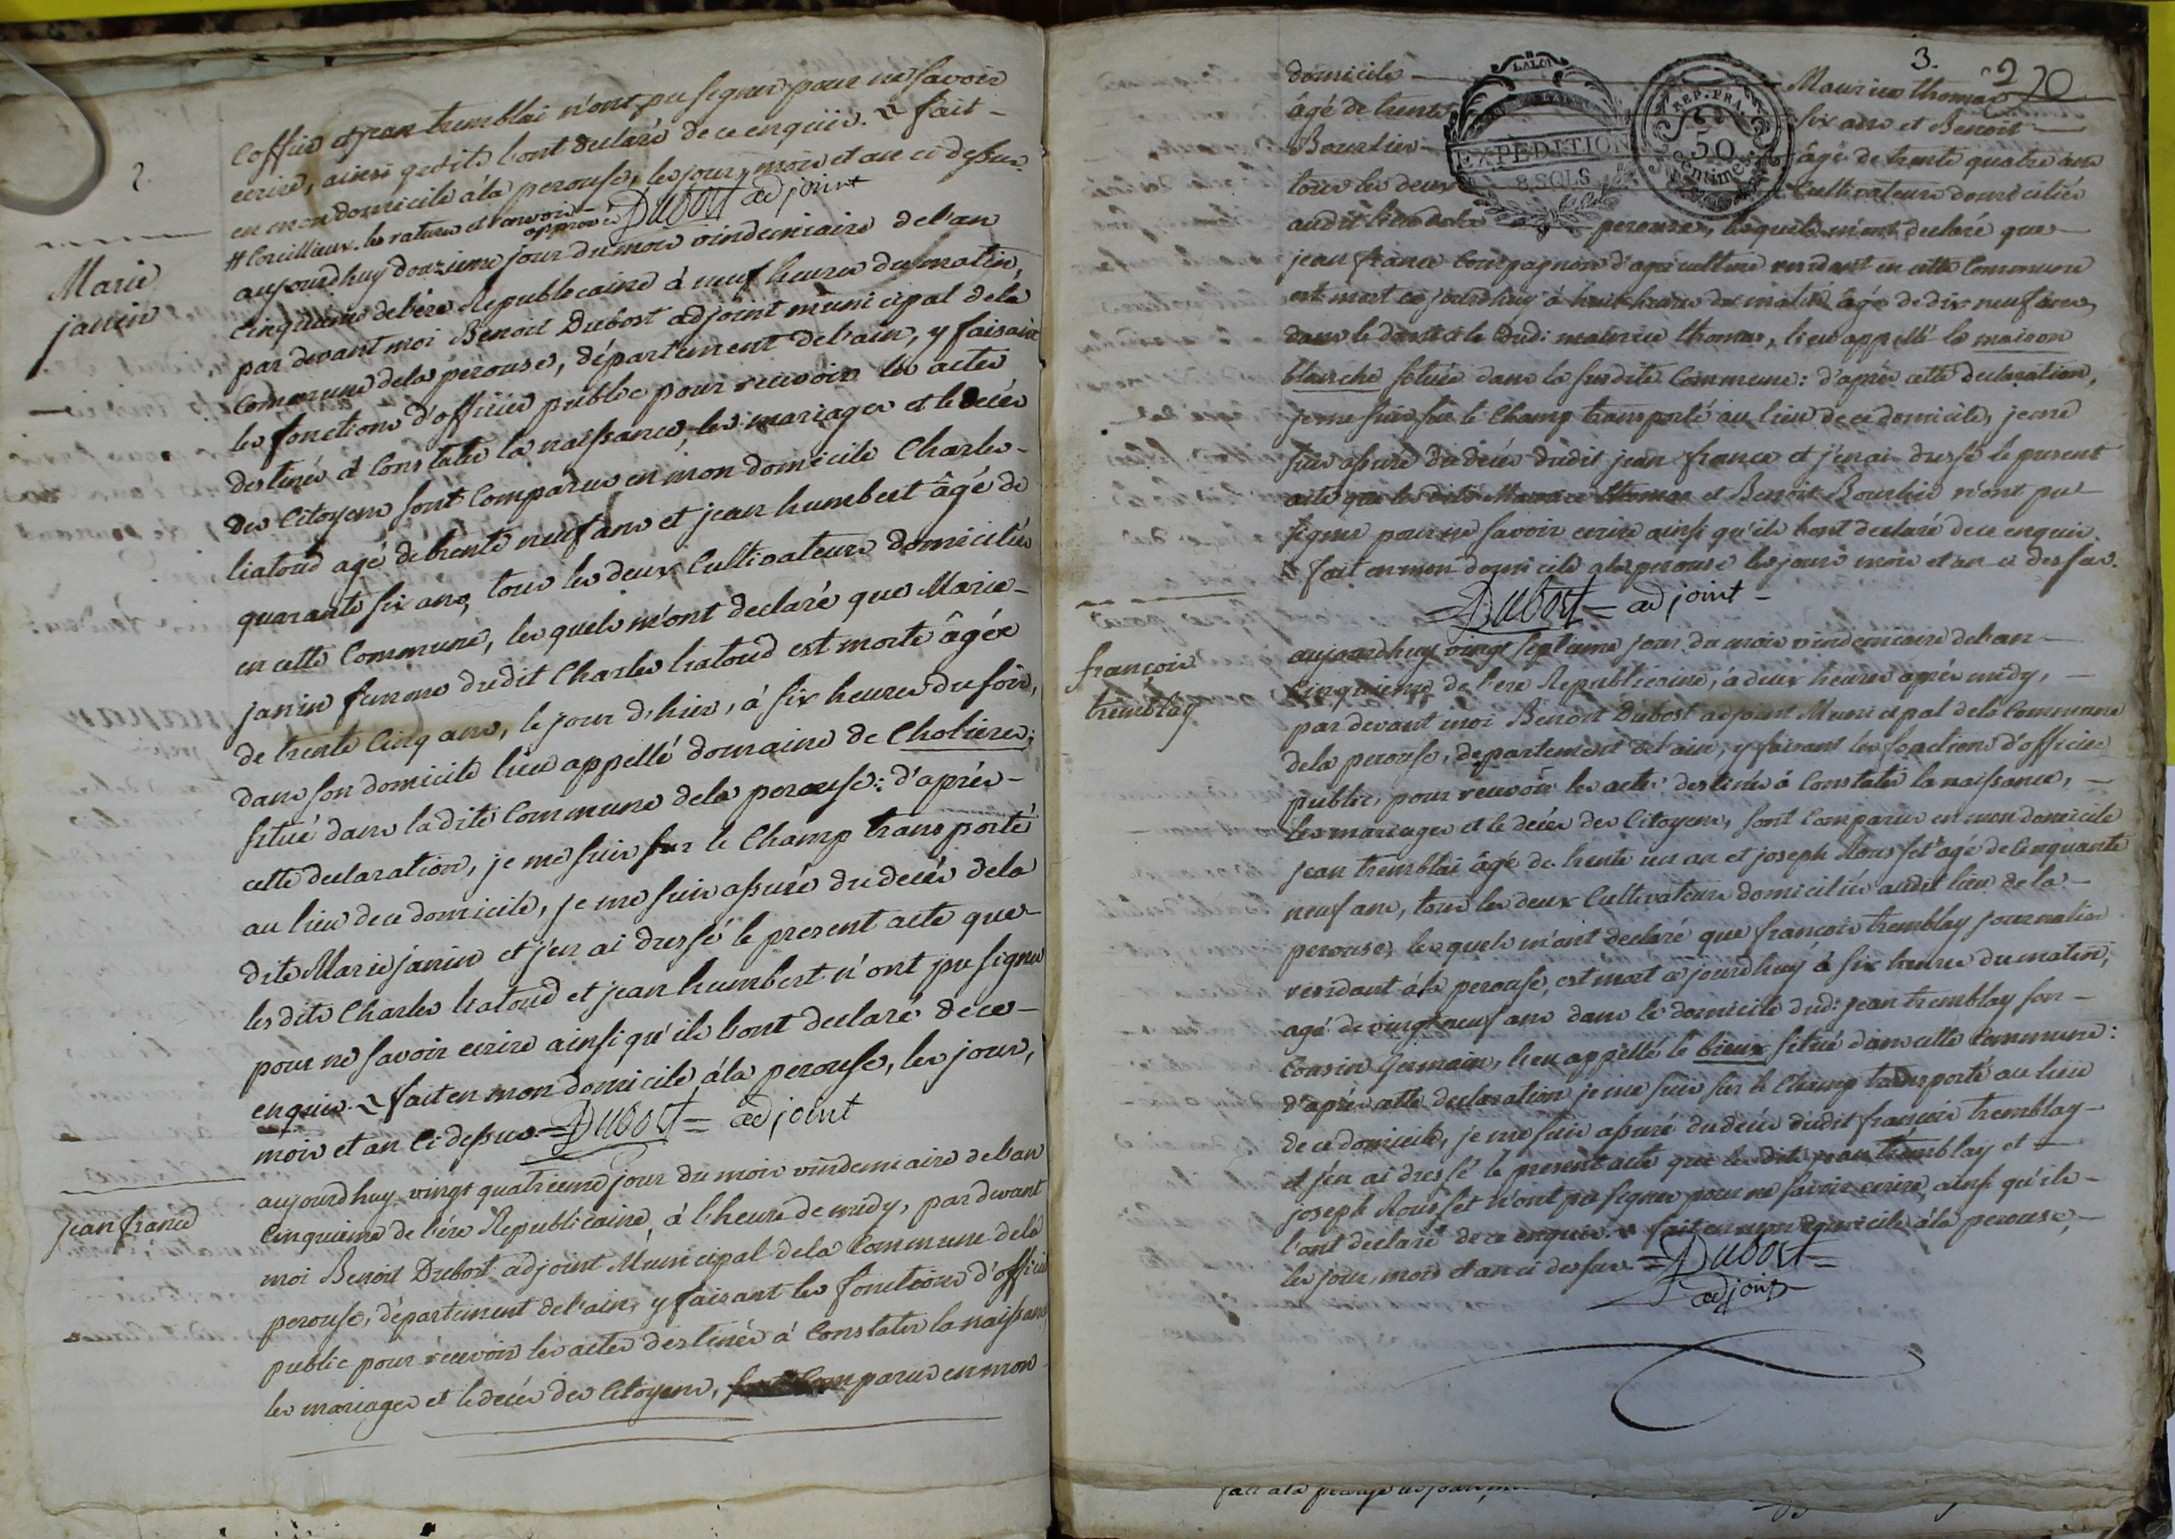 2.
Coffier et jean tremblai n'ont pu signer pour ne savoir
ecrire, ainsi qu'ils l'ont declaré de ce enquiis. fait
en mon domicile à la perouse, les jour, mois et an ci dessus
# Coreillieux. les ratures et renvoir approuvé Dubost adjoint
Marie
janin
aujourdhuy douzieme jour du mois vindemiaire de l'an
Cinquieme de l'ére Republicaine à neuf heures du matin,
par devant moi Benoit Dubost adjoint municipal de la
Commune de la perouse, département de l'ain, y faisant
les fonctions d'officier public pour recevoir les actes
destinés à Constater la naissance, les mariages et le decés
des Citoyens sont Comparus en mon domicile Charles
liatoud agé de trente neuf ans et jean humbert âgé de
quarante six ans, tous les deux Cultivateurs domiciliés
en cette Commune, les quels m'ont declaré que Marie
janin femme dudit Charles liatoud est morte âgée
de trente Cinq ans, le jour d'hier, à six heures du soir,
dans son domicile lieu appellé domaine de Cholieres;
situé dans ladite Commune de la perouse: d'aprés
cette declaration, je me suis sur le Champ transporté
au lieu de ce domicile, je me suis assuré du decés de la
dite Marie janin et j'en ai dressé le present acte que
les dits Charles liatoud et jean humbert n'ont pu signer
pour ne savoir ecrire ainsi qu'ils l'ont declaré de ce
enquis. fait en mon domicile à la perouse, les jour,
mois et an Ci dessus = Dubost = adjoint
jean france
aujourdhuy vingt quatrieme jour du mois vindemiaire de l'an
Cinquieme de l'ére Republicaine, à l'heure de midy, par devant
moi Benoit Dubost adjoint Municipal de la Commune de la
perouse, département de l'ain, y faisant les fonctions d'officier
public pour recevoir les actes destinés à Constater la naissance
les mariages et le decés des Citoyens, sont Comparus en mon
3.
20
LA LOI
EXPÉDITION
8 SOLS
REP. FRA.
50
centimes
domicile Maurice thomas
âgé de trente six ans et Benoit
Bourlier âgé de trente quatre ans
tous les deux Cultivateurs domiciliés
audit lieu de la perouse, lesquels m'ont declaré que
jean france Compagnon d'agriculture residant en cette Commune
est mort ce jourdhuy à huit heures du matin âgé de dix neuf ans,
dans le domicile dud: maurice thomas, lieu appellé la maison
blanche située dans la susdite Commune: d'après cette declaration,
je me suis sur le Champ transporté au lieu de ce domicile, je me
suis assuré du decés dudit jean france et j'en ai dressé le present
acte que les dits Maurice thomas et Benoit Bourlier n'ont pu
signer pour ne savoir ecrire ainsi qu'ils l'ont declaré de ce enquis.
fait en mon domicile a la perouse les jour mois et an ci dessus.
= Dubost = adjoint
françois
tremblay
aujourdhuy vingt septieme jour du mois vindemiaire de l'an
Cinquieme de l'ere Republicaine, à deux heures aprés midy,
par devant moi Benoit Dubost adjoint Municipal de la Commune
de la perouse, departement de l'ain, y faisant les fonctions d'officier
public, pour recevoir les actes destinés à Constater la naissance,
les mariages et le decés des Citoyens, sont Comparus en mon domicile
jean tremblai âgé de trente un an et joseph Rousset agé de Cinquante
neuf ans, tous les deux Cultivateurs domiciliés audit lieu de la
perouse, les quels m'ont declaré que francois tremblay journalier
residant à la perouse, est mort ce jourdhuy à six heures du matin,
agé de vingt neuf ans dans le domicile dud: jean tremblay son
Cousin Germain, lieu appellé le bieux situé dans cette Commune:
d'après cette declaration je me suis sur le Champ transporté au lieu
de ce domicile, je me suis assuré du decés dudit françois tremblay
et j'en ai dressé le present acte que les dits jean tremblay et
joseph Rousset n'ont pu signer pour ne savoir ecrire, ainsi qu'ils
l'ont declaré de ce enquis. fait en mon domicile à la perouse,
les jour, mois et an ci dessus = Dubost =
adjoint